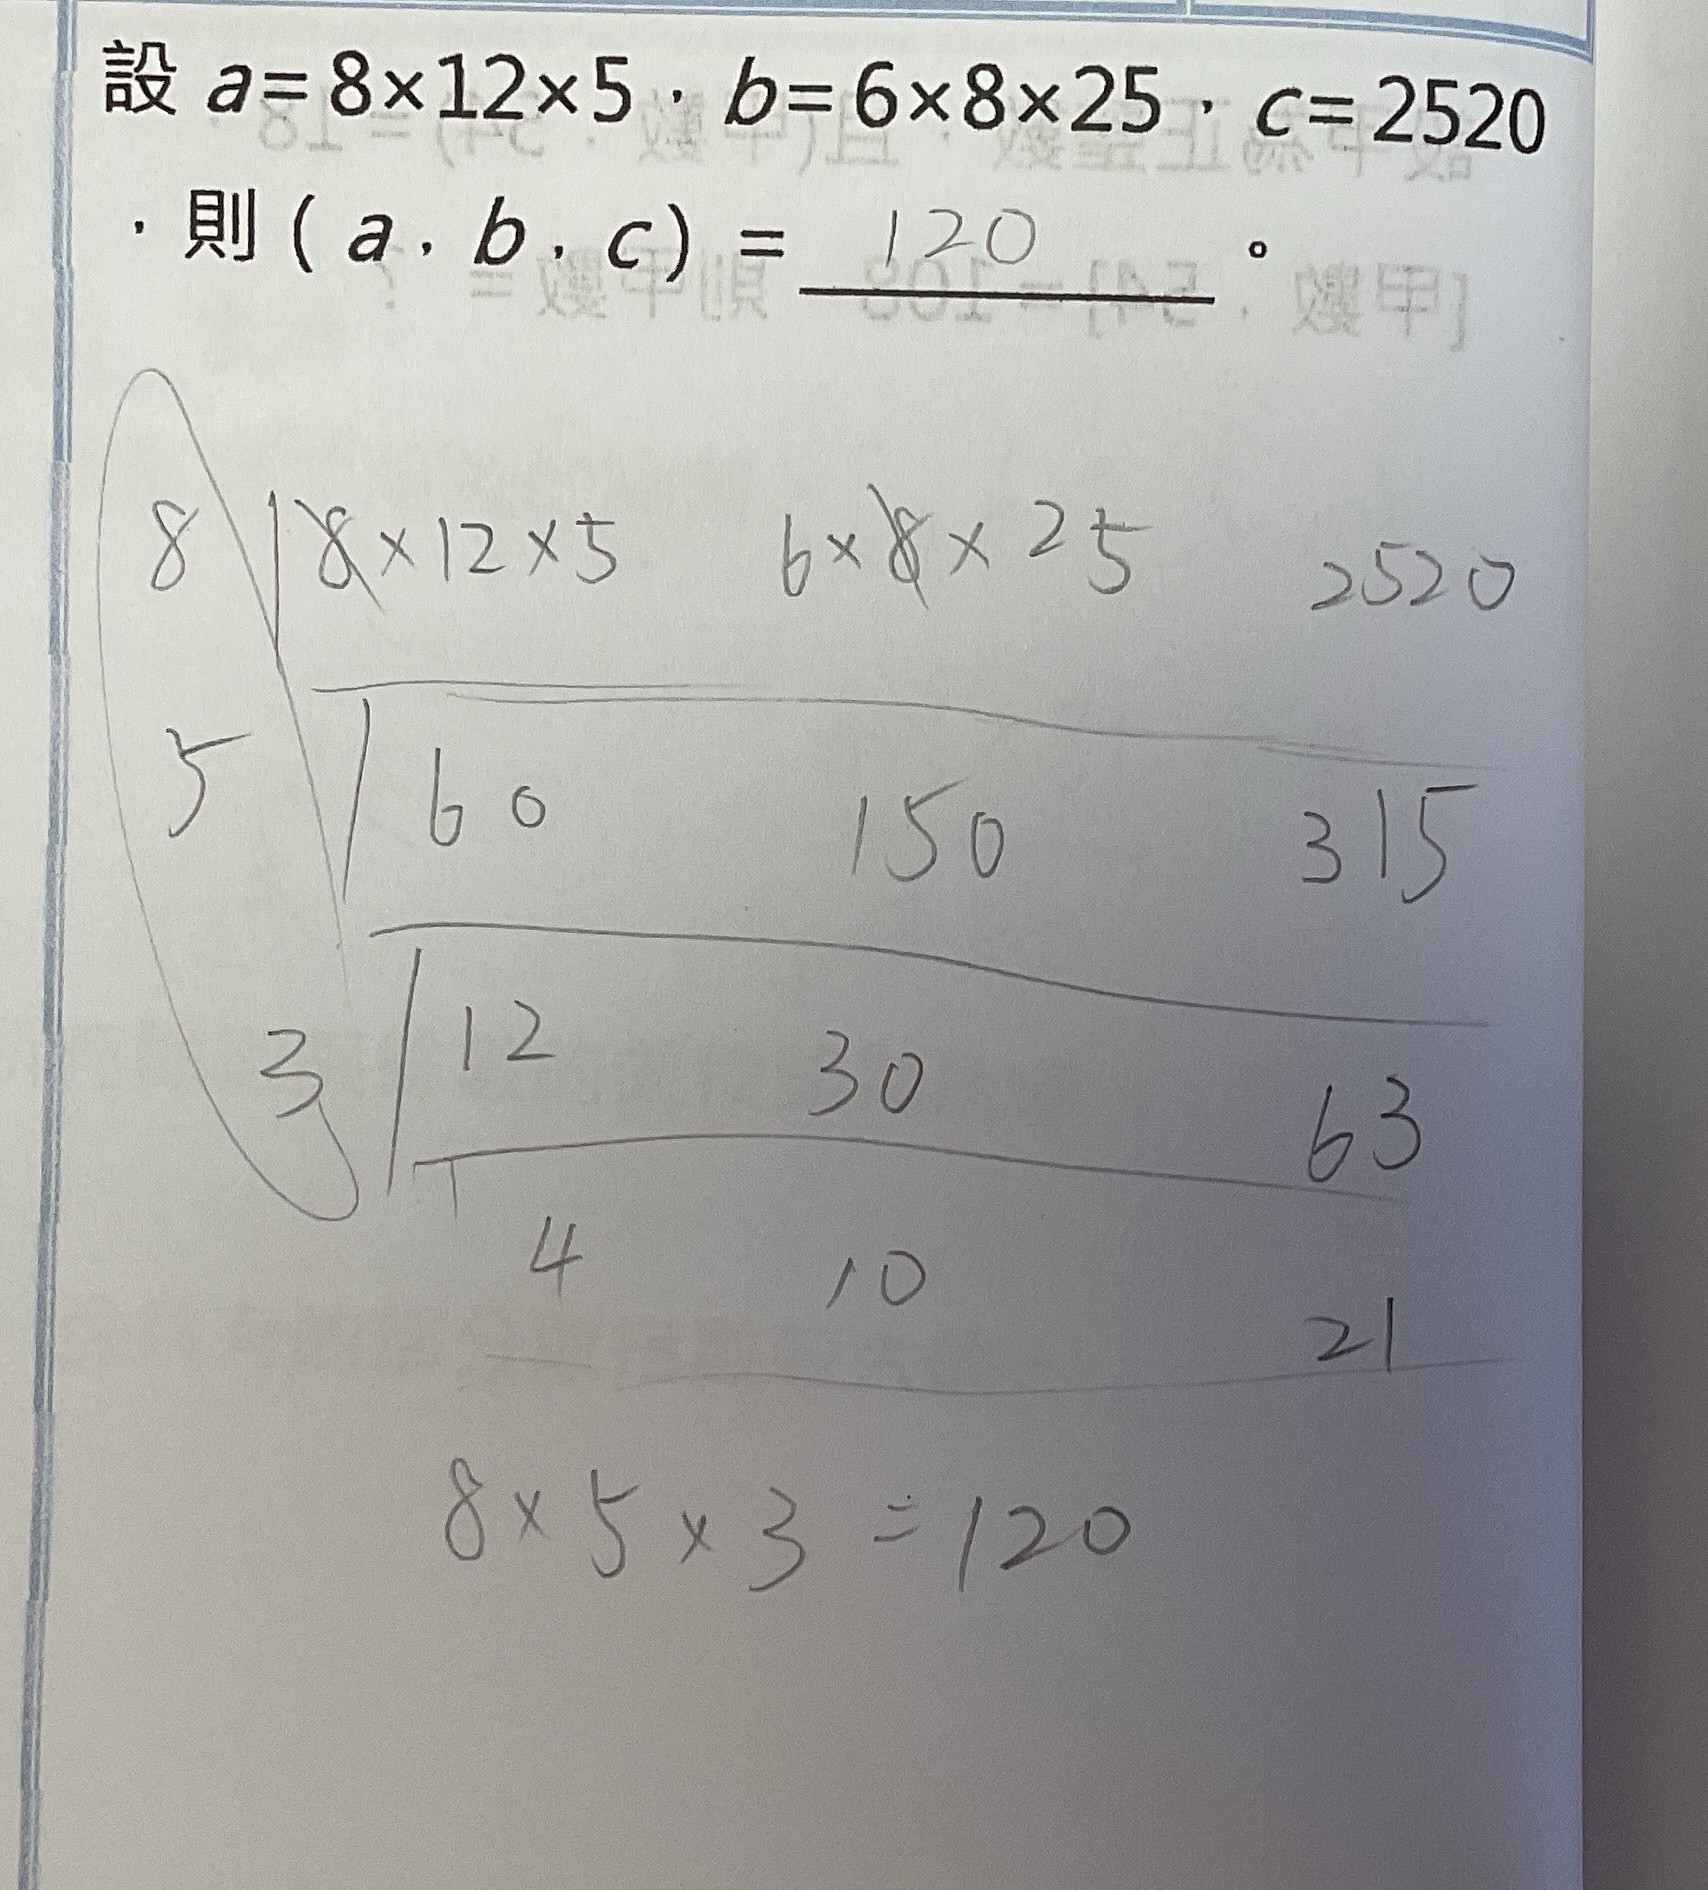 設 a=8×12×5，b=6×8×25，c=2520
，則 ( a，b，c) = 120 。
8 8×12×5 6×8×25 2520
5 60 150 315
3 12 30 63
4 10 21
8×5×3=120